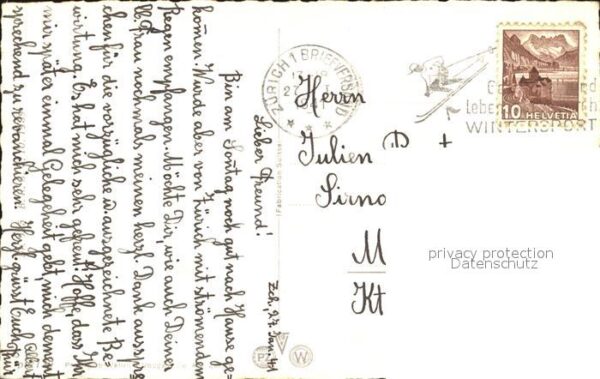 Zch, 27. Jan. 41
Lieber Freund!
Bin am Sontag noch gut nach Hause ge-
komen. Wurde aber von Zürich mit strömendem
Regen empfangen. Möchte Dir, wie auch Deiner
lb. Frau nochmals meinen herzl. Dank ausspre-
chen für die vorzügliche u. ausgezeichnete Be-
wirtung. Es hat mich sehr gefreut! Hoffe, dass Ihr
mir später einmal Gelegenheit gebt, mich dement-
sprechend zu revanchieren. Herzl. grüsst Euch
Herrn
Julien D +
Sirno
M
Kt
ZÜRICH 1 BRIEFVERSAND
WINTERSPORT
10 HELVETIA
(Fabrication Suisse)
PZ
W
privacy protection
Datenschutz